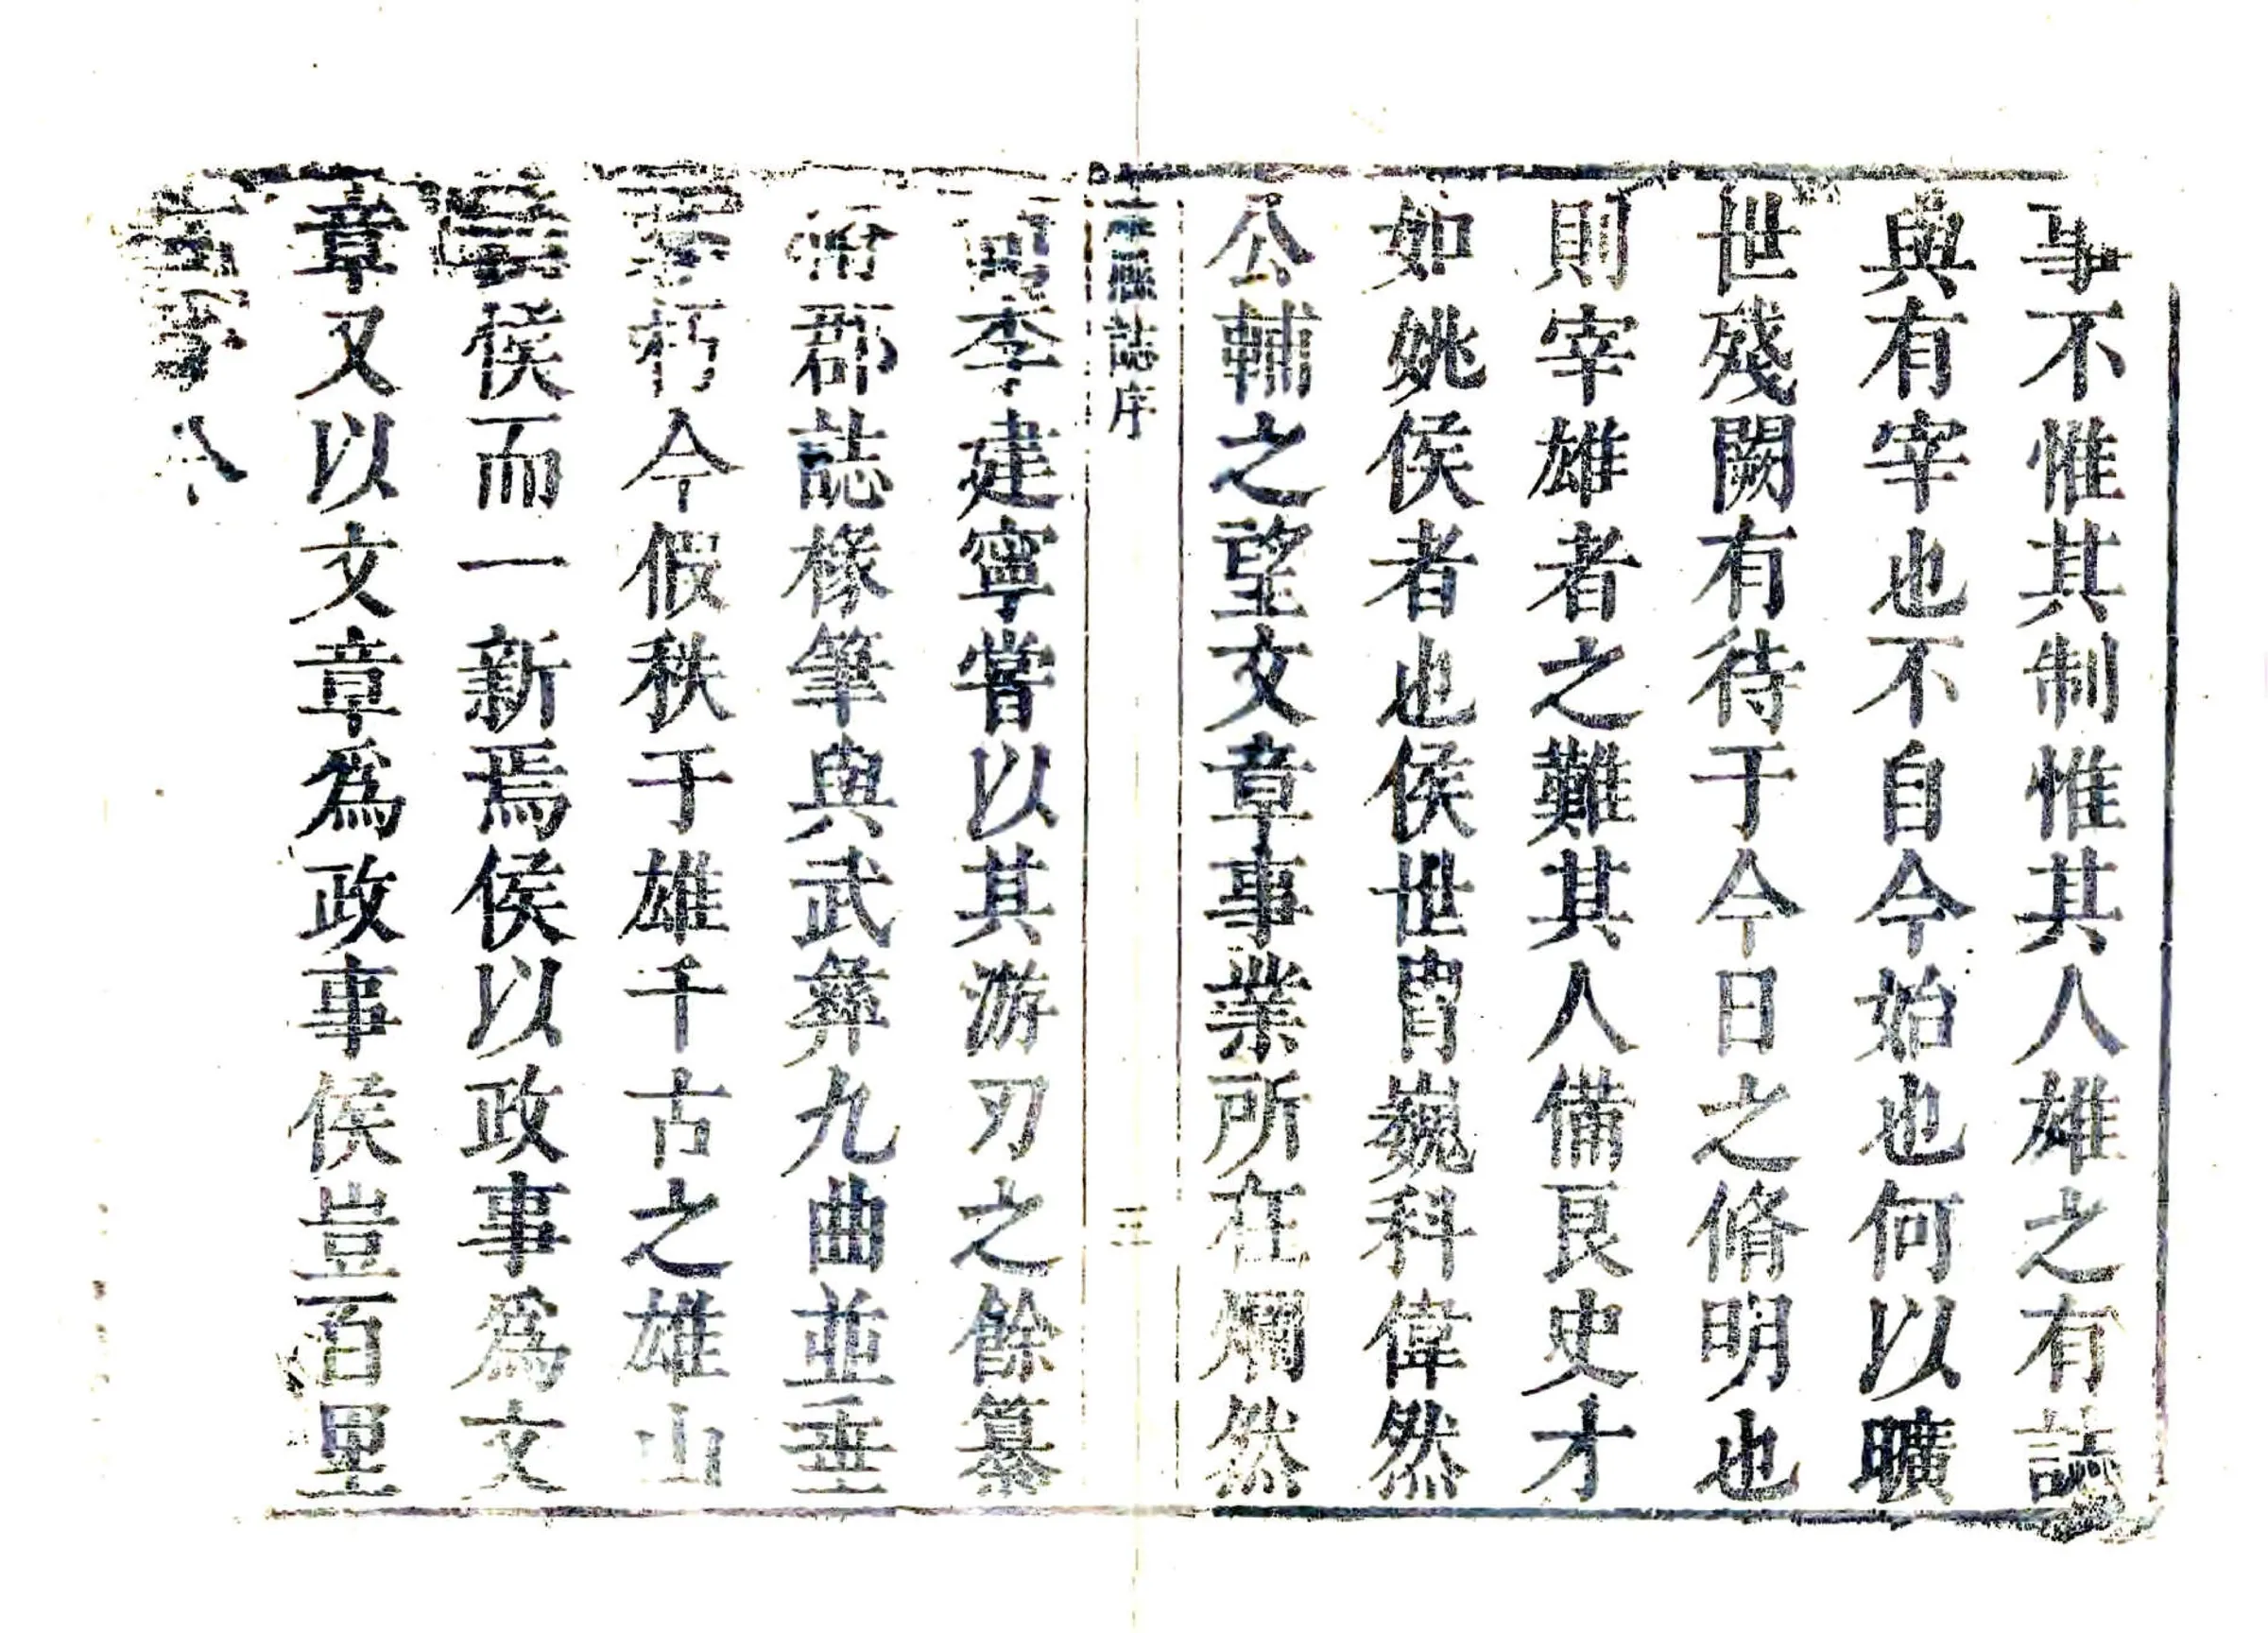 事不惟其制惟其人雄之有誌
與有宰也不自今始也何以曠
世殘闕有待于今日之脩明也
則宰雄者之難其人備良史才
如姚侯者也侯世胄巍科偉然
公輔之望文章事業所在爛然
縣誌序
三
李建寧嘗以其游刃之餘纂
郡誌椽筆與武彝九曲並垂
朽今假秩于雄千古之雄山
侯而一新焉侯以政事爲文
章又以文章爲政事侯豈百里